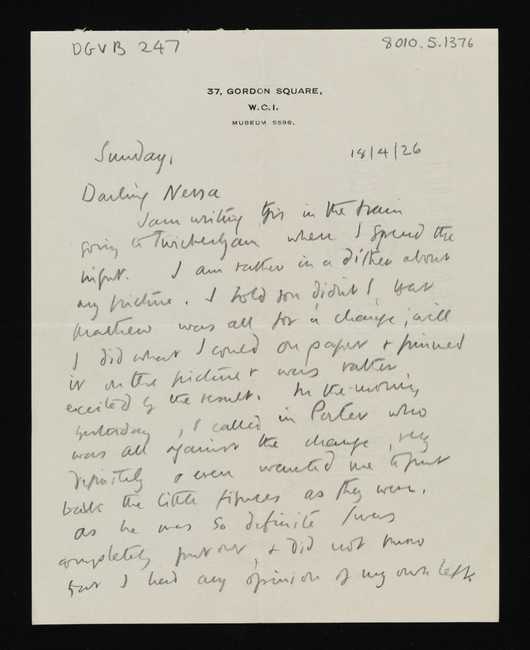 DGVB 247
8010.5.1376
37, GORDON SQUARE,
W.C.1.
MUSEUM 5596.
Sunday,
18/4/26
Darling Nessa
I am writing this in the train
going to Twickenham where I spend the
night. I am rather in a dither about
my picture. I told you didn't I that
Matthew was all for a change, well
I did what I could on paper & pinned
it on the picture & was rather
excited by the result. In the morning
yesterday, I called in Porter who
was all against the change, very
definitely & even wanted me to put
back the little figures as they were.
as he was so definite I was
completely put out, & did not know
that I had any opinion of my own left